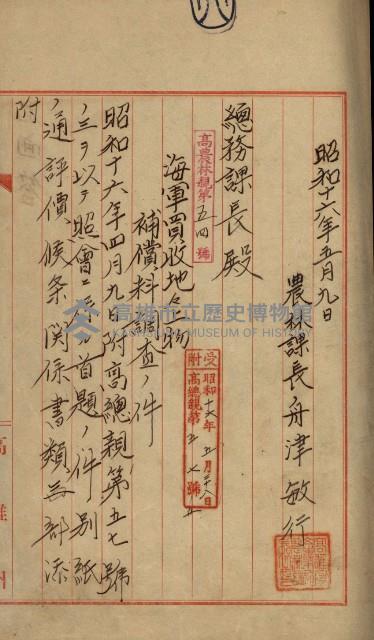 昭和十六年五月九日
農林課長舟津敏行
總務課長殿
高農林親第五四號
海軍買收地々物
補償料調査ノ件
受附
昭和十六年五月
高總親第五七號
昭和十六年四月九日附高總親第五七號
ノ三ヲ以テ照會ニ係ル首題ノ件別紙
ノ通評價候条関係書類全部添
附
高雄州
高雄市立歷史博物館
KAOHSIUNG MUSEUM OF HISTORY